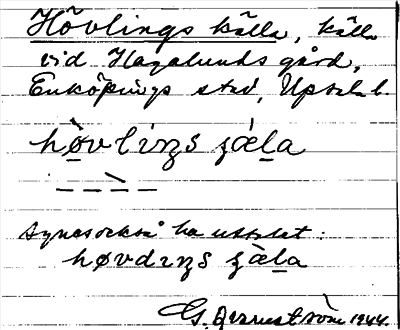 Hövlings källa, källa
vid Hagalunds gård,
Enköpings stad, Upsala l.
hø̀vlıŋs ɟæ̀la
Synes också ha uttalet:
høvdıŋs ɟæ̀la
G. Jernström 1944.